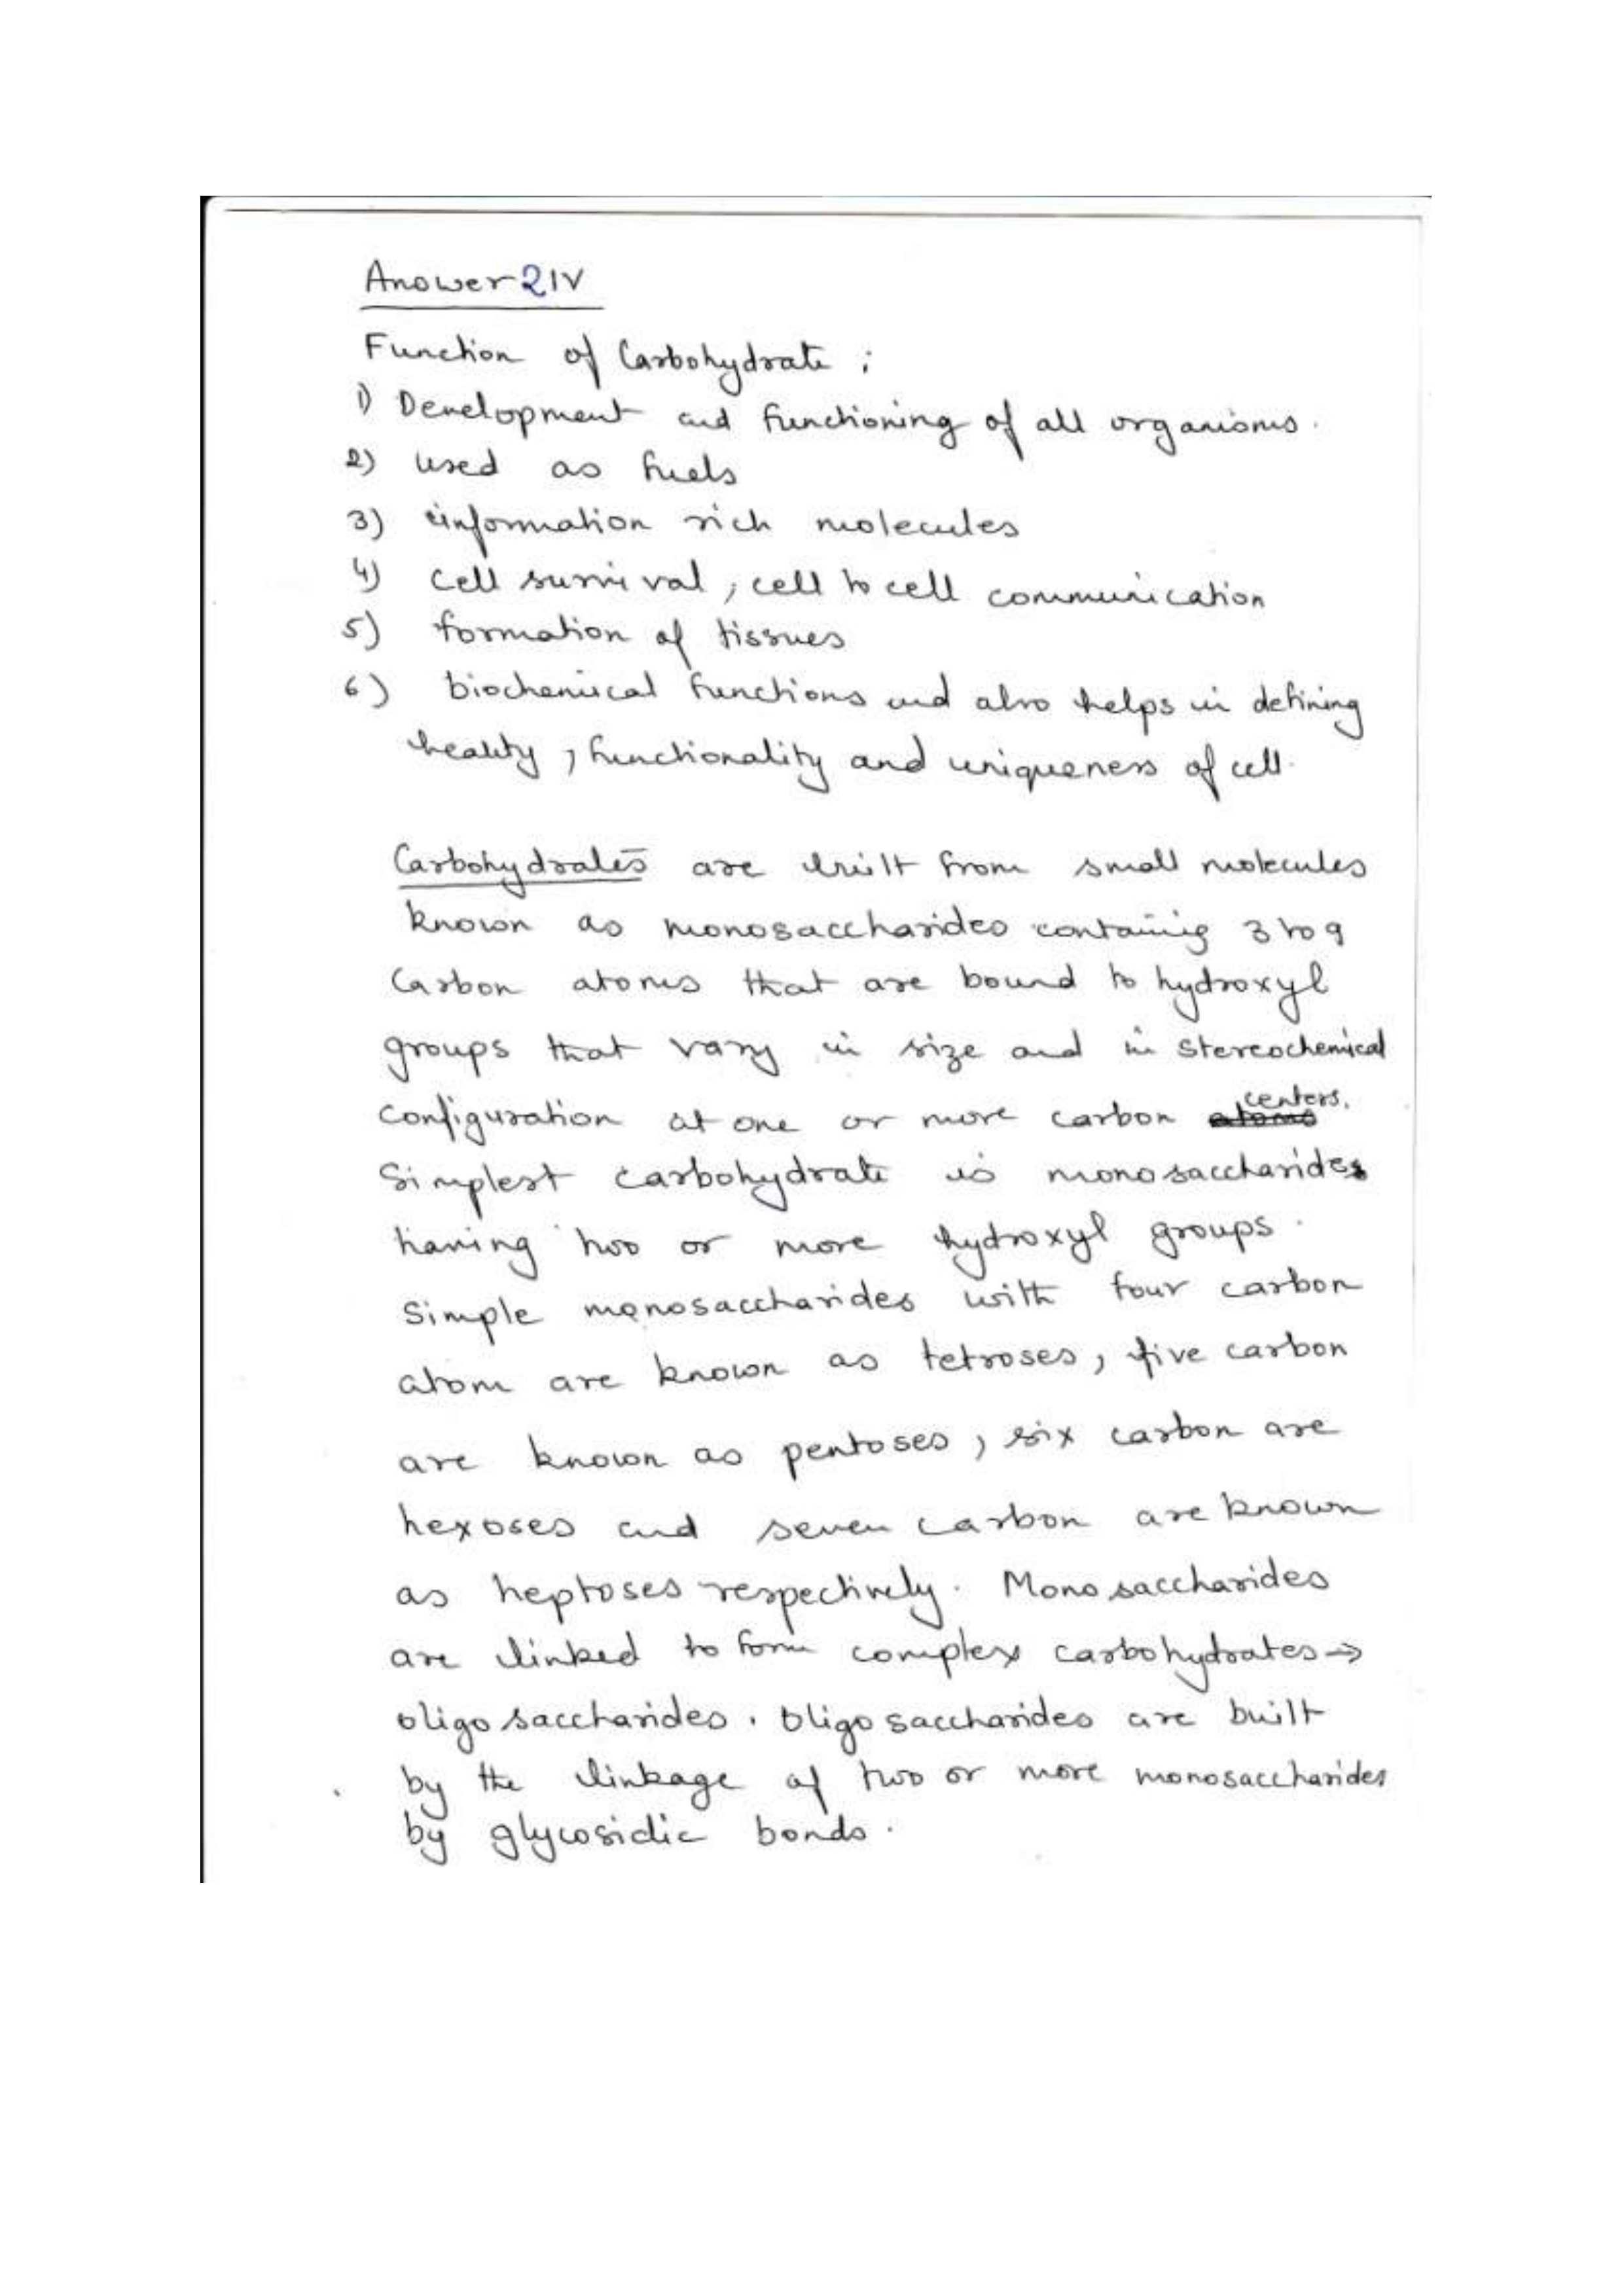 Answer 2IV
Function of Carbohydrate ;
1) Development and functioning of all organisms.
2) used as fuels
3) information rich molecules
4) cell survival, cell to cell communication
5) formation of tissues
6) biochemical functions and also helps in defining
healty, functionality and uniqueness of cell.
Carbohydrates are built from small molecules
known as monosaccharides containig 3 to 9
Carbon atoms that are bound to hydroxyl
groups that vary in size and in stereochemical
configuration at one or more carbon atoms centers.
Simplest carbohydrate is monosaccharides
having two or more hydroxyl groups.
Simple monosaccharides with four carbon
atom are known as tetroses, five carbon
are known as pentoses, six carbon are
hexoses and seven carbon are known
as heptoses respectively. Monosaccharides
are linked to form complex carbohydrates →
oligosaccharides. Oligosaccharides are built
by the linkage of two or more monosaccharides
by glycosidic bonds.